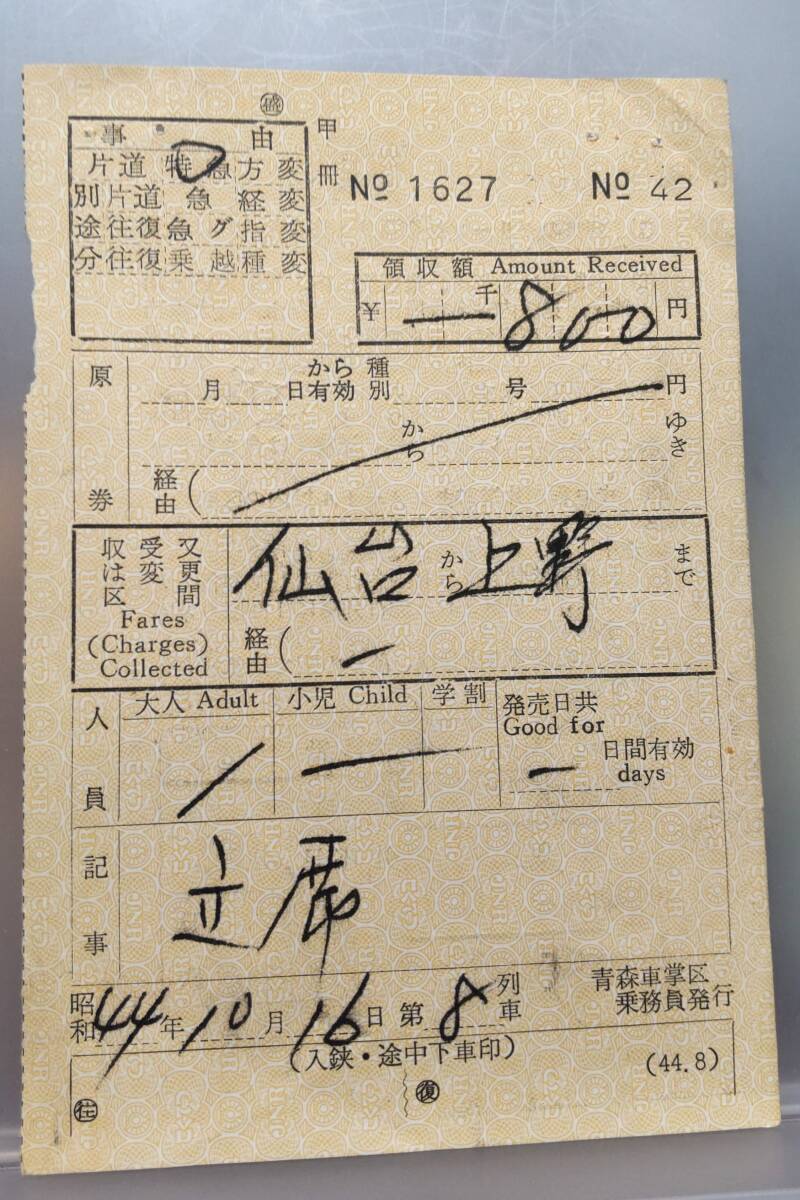 ㊙
事由
片道特急方変
別片道急経変
途往復急グ指変
分往復乗越種変
甲冊 № 1627 № 42
領収額 Amount Received
¥ 一千800円
原券
月から日有効種別号円
からゆき
経由(
収受又は変更区間
Fares
(Charges)
Collected
仙台から上野まで
経由(ー
人員
大人 Adult 小児 Child 学割
1 ー
発売日共
Good for
ー日間有効
days
記事
立席
昭和44年10月16日第8列車
青森車掌区
乗務員発行
(入鋏・途中下車印)
(44.8)
㊟ ㊝